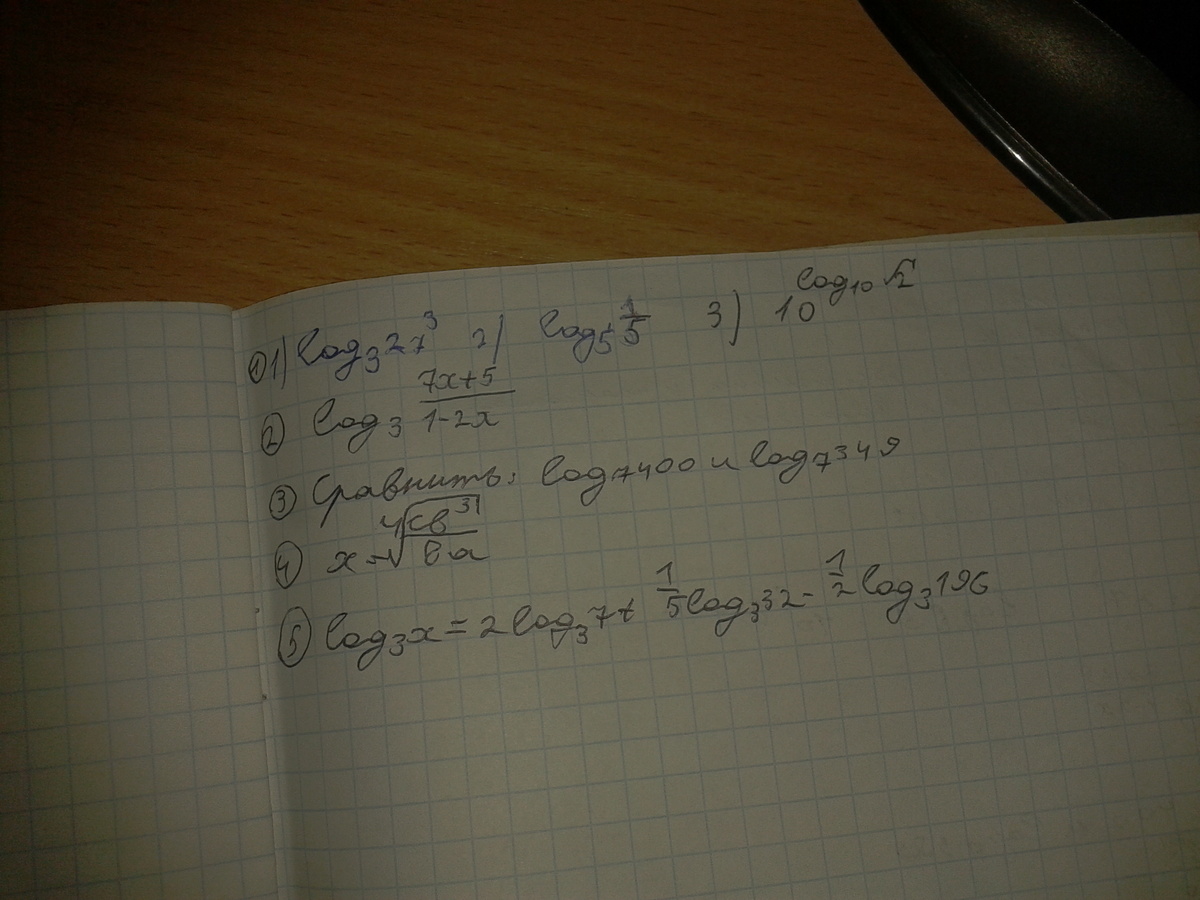 ① 1) log₃27³ 2) log₅ 1/5 3) 10^(log₁₀√2)
② log₃ (7x+5)/(1-2x)
③ Сравнить: log₇400 и log₇349
④ x=⁴√(cb³)/(ba)
⑤ log₃x = 2log₃7 + 1/5 log₃32 - 1/2 log₃196